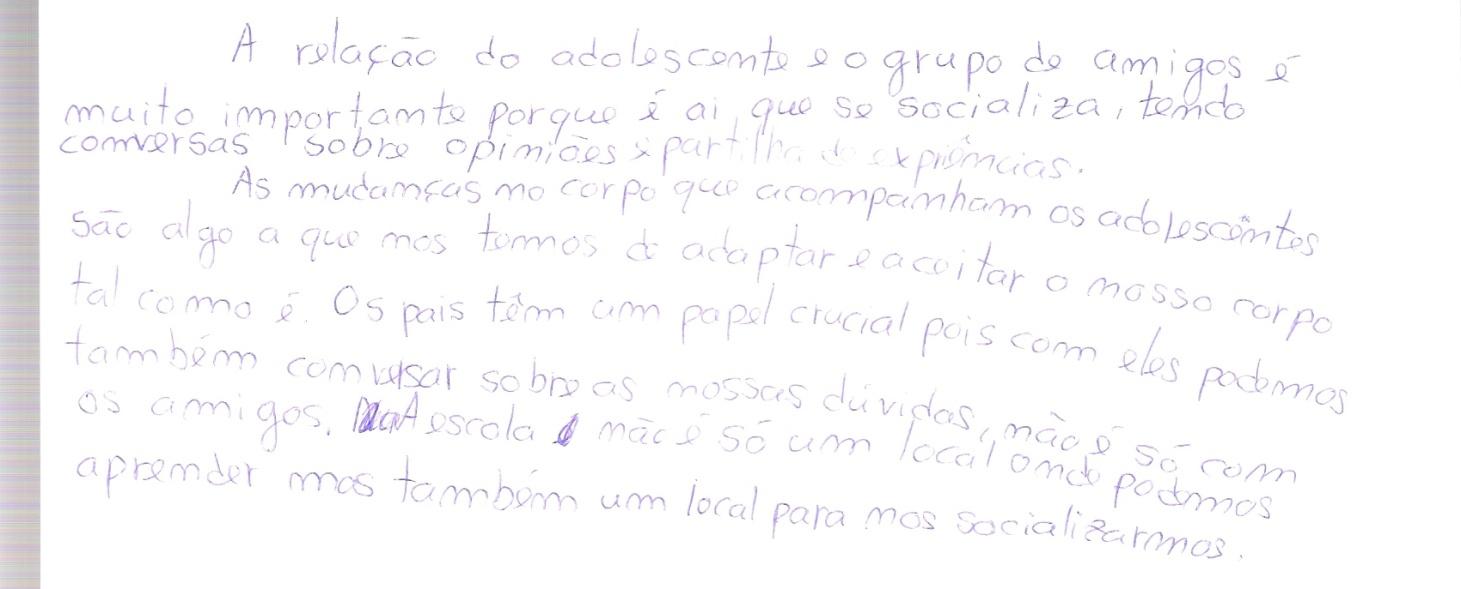 A relação do adolescente e o grupo de amigos é
muito importante porque é ai, que se socializa, tendo
conversas sobre opiniões e partilha de expriências.
As mudanças no corpo que acompanham os adolescêntes
são algo a que nos temos de adaptar e aceitar o nosso corpo
tal como é. Os pais têm um papel crucial pois com eles podemos
também conversar sobre as nossas dúvidas, não é só com
os amigos. A escola não é só um local onde podemos
aprender mas também um local para nos socializarmos.